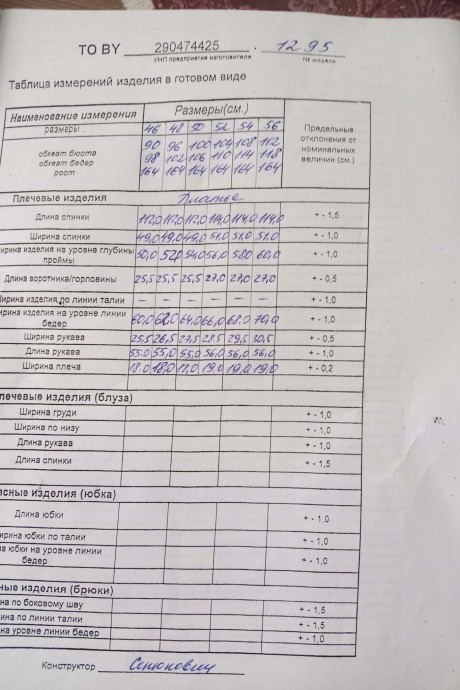 ТО BY 290474425 . 1295
УНП предприятия изготовителя № модели
Таблица измерений изделия в готовом виде
Наименование измерения Размеры(см.) Предельные отклонения от номинальных величин (см.)
размеры 46 48 50 52 54 56
обхват бюста 90 96 100 104 108 112
обхват бедер 98 102 106 110 114 118
рост 164 164 164 164 164 164
Плечевые изделия Платье
Длина спинки 112,0 112,0 112,0 114,0 114,0 114,0 + - 1,5
Ширина спинки 49,0 49,0 49,0 51,0 51,0 51,0 + - 1,0
ирина изделия на уровне глубины
проймы 50,0 52,0 54,0 56,0 58,0 60,0 + - 1,0
Длина воротника/горловины 25,5 25,5 25,5 27,0 27,0 27,0 + - 0,5
ирина изделия по линии талии – – – – – – + - 1,0
ирина изделия на уровне линии
бедер 60,0 62,0 64,0 66,0 68,0 70,0 + - 1,0
Ширина рукава 25,5 26,5 27,5 28,5 29,5 30,5 + - 0,5
Длина рукава 55,0 55,0 55,0 56,0 56,0 56,0 + - 1,0
Ширина плеча 18,0 18,0 18,0 19,0 19,0 19,0 + - 0,2
лечевые изделия (блуза)
Ширина груди + - 1,0
Ширина по низу + - 1,0
Длина рукава + - 1,0
Длина спинки + - 1,5
ясные изделия (юбка)
Длина юбки + - 1,0
ирина юбки по талии + - 1,0
на юбки на уровне линии
бедер + - 1,0
ные изделия (брюки)
на по боковому шву + - 1,5
ина по линии талии + - 1,5
на уровне линии бедер + - 1,0
Конструктор